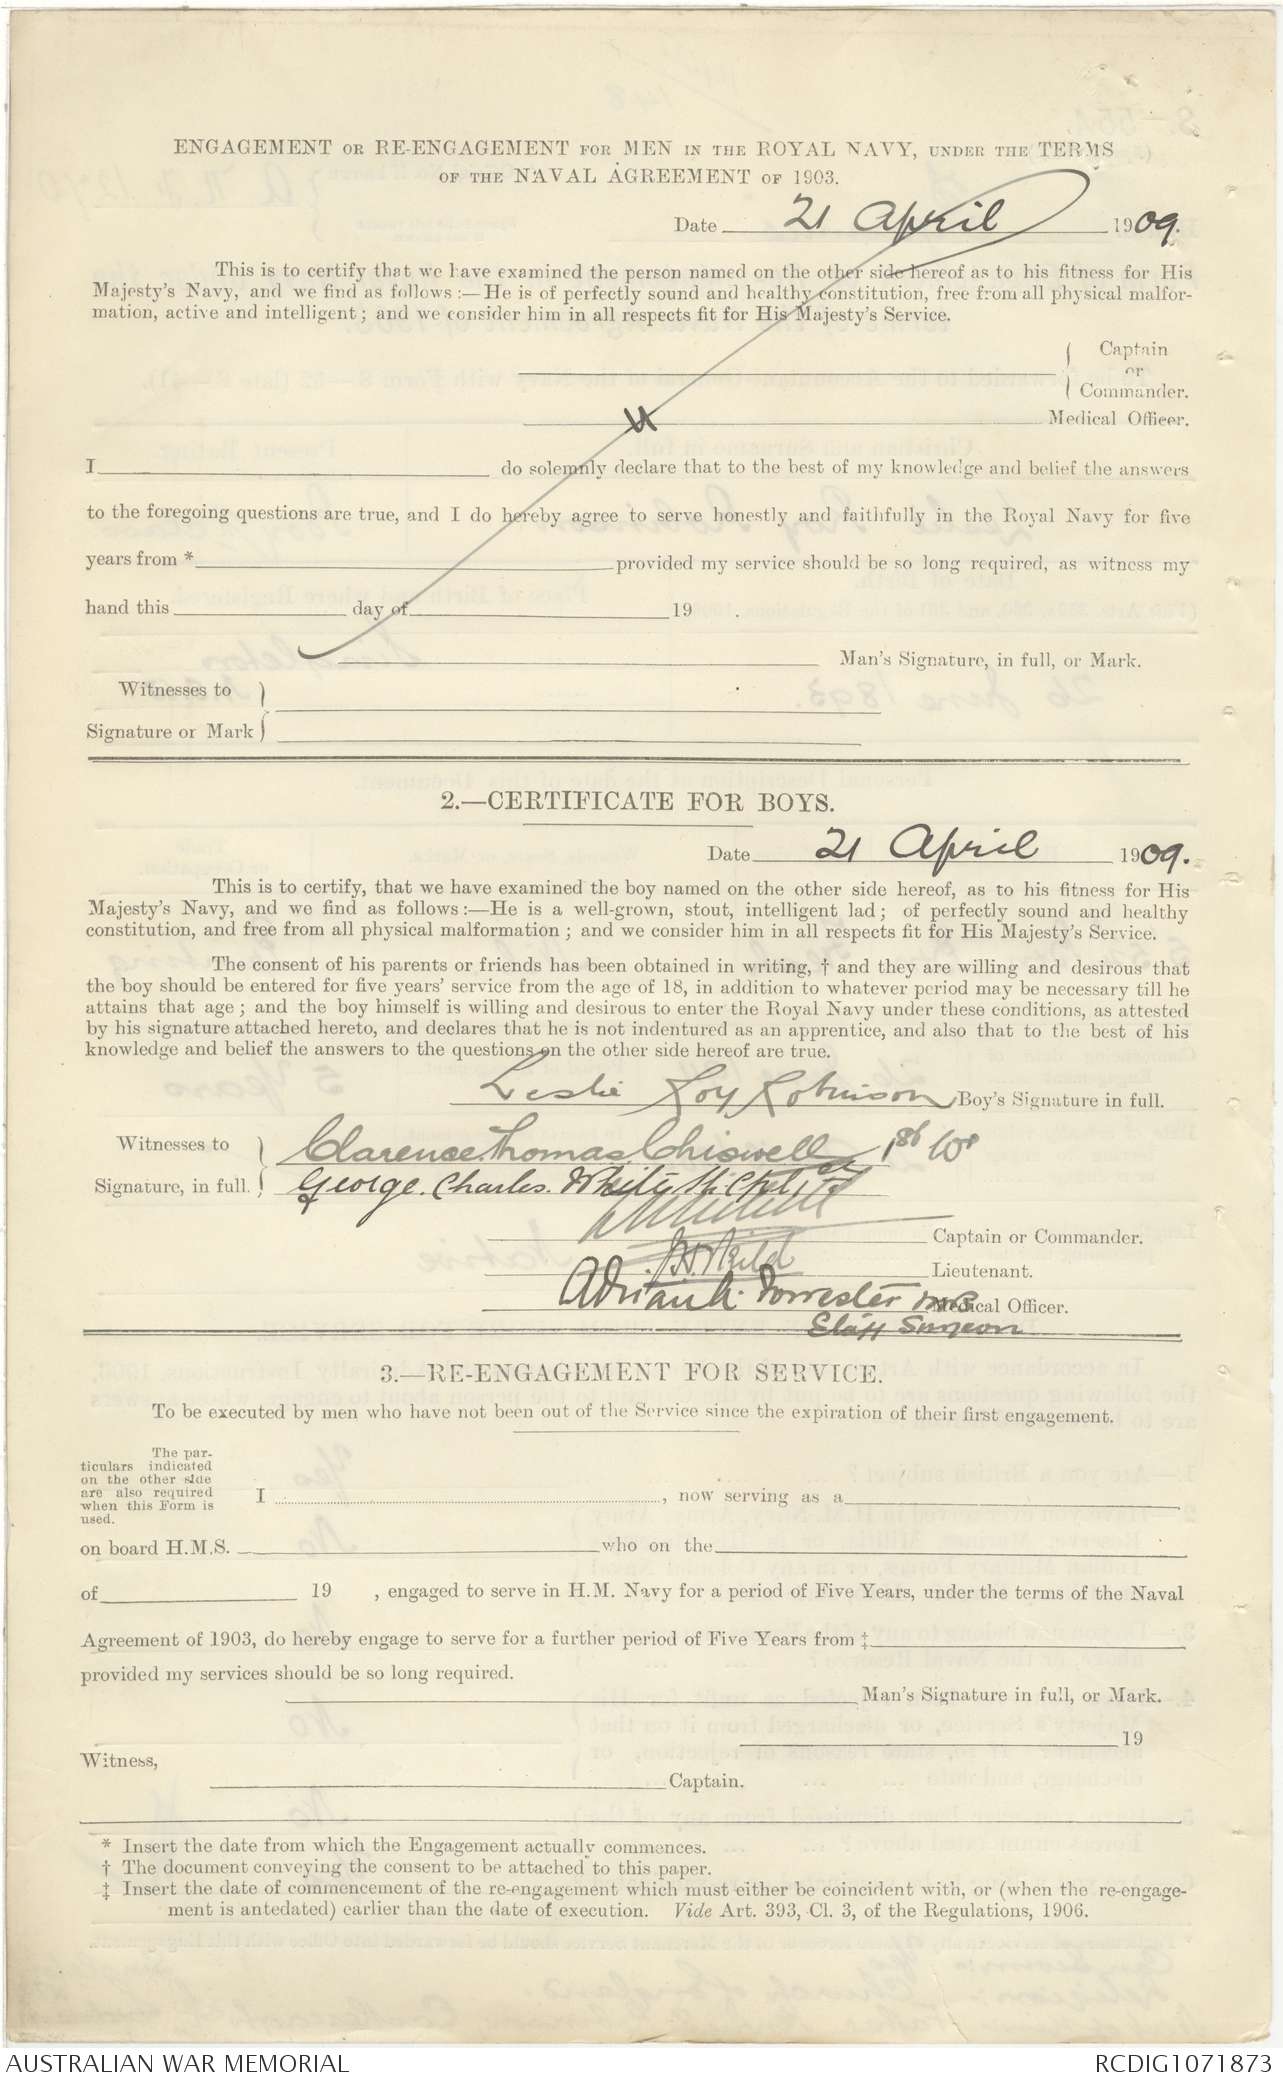 ENGAGEMENT OR RE-ENGAGEMENT FOR MEN IN THE ROYAL NAVY, UNDER THE TERMS
OF THE NAVAL AGREEMENT OF 1903.
Date 21 April 1909.
This is to certify that we have examined the person named on the other side hereof as to his fitness for His
Majesty's Navy, and we find as follows:—He is of perfectly sound and healthy constitution, free from all physical malfor-
mation, active and intelligent; and we consider him in all respects fit for His Majesty's Service.
Captain
or
Commander.
Medical Officer.
I do solemnly declare that to the best of my knowledge and belief the answers
to the foregoing questions are true, and I do hereby agree to serve honestly and faithfully in the Royal Navy for five
years from * provided my service should be so long required, as witness my
hand this day of 19 .
Man's Signature, in full, or Mark.
Witnesses to
Signature or Mark
2.—CERTIFICATE FOR BOYS.
Date 21 April 1909.
This is to certify, that we have examined the boy named on the other side hereof, as to his fitness for His
Majesty's Navy, and we find as follows:—He is a well-grown, stout, intelligent lad; of perfectly sound and healthy
constitution, and free from all physical malformation; and we consider him in all respects fit for His Majesty's Service.
The consent of his parents or friends has been obtained in writing, † and they are willing and desirous that
the boy should be entered for five years' service from the age of 18, in addition to whatever period may be necessary till he
attains that age; and the boy himself is willing and desirous to enter the Royal Navy under these conditions, as attested
by his signature attached hereto, and declares that he is not indentured as an apprentice, and also that to the best of his
knowledge and belief the answers to the questions on the other side hereof are true.
Leslie Roy Robinson Boy's Signature in full.
Witnesses to
Signature, in full.
Clarence Thomas Chiswell 1st Wr
George. Charles. White
Captain or Commander.
Lieutenant.
Adrian A. Forrester MB Medical Officer.
Staff Surgeon
3.—RE-ENGAGEMENT FOR SERVICE.
To be executed by men who have not been out of the Service since the expiration of their first engagement.
The par-
ticulars indicated
on the other side
are also required
when this Form is
used.
I , now serving as a
on board H.M.S. who on the
of 19 , engaged to serve in H.M. Navy for a period of Five Years, under the terms of the Naval
Agreement of 1903, do hereby engage to serve for a further period of Five Years from ‡
provided my services should be so long required.
Man's Signature in full, or Mark.
19
Witness,
Captain.
* Insert the date from which the Engagement actually commences.
† The document conveying the consent to be attached to this paper.
‡ Insert the date of commencement of the re-engagement which must either be coincident with, or (when the re-engage-
ment is antedated) earlier than the date of execution. Vide Art. 393, Cl. 3, of the Regulations, 1906.
AUSTRALIAN WAR MEMORIAL
RCDIG1071873